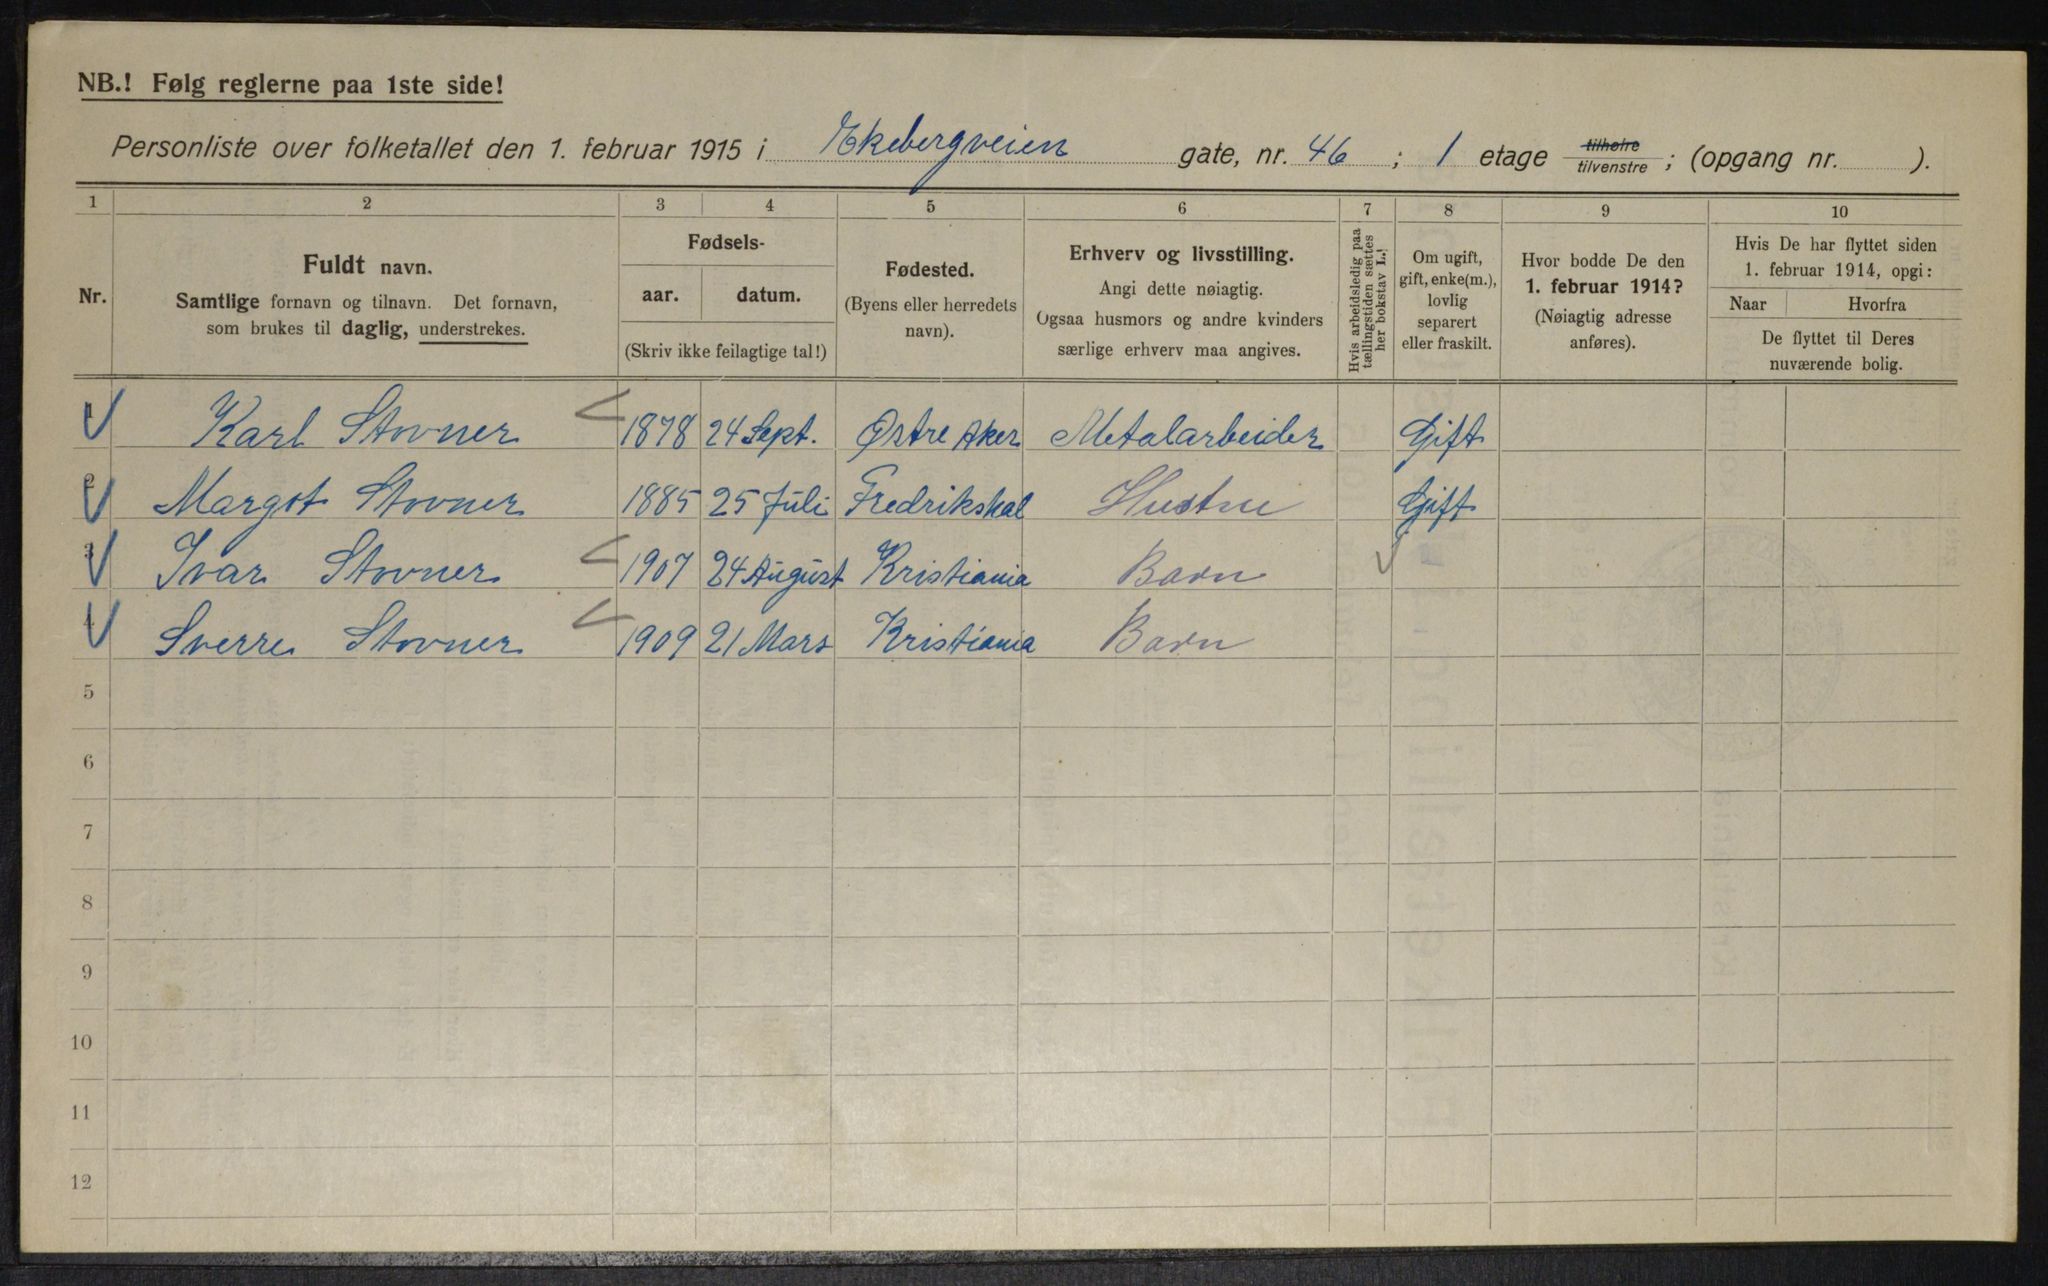 NB.! Følg reglerne paa 1ste side!
Personliste over folketallet den 1. februar 1915 i Ekebergveien gate, nr. 46 ; 1 etage tilhøire tilvenstre ; (opgang nr. ).
1 2 3 4 5 6 7 8 9 10
Nr.
Fuldt navn.
Samtlige fornavn og tilnavn. Det fornavn,
som brukes til daglig, understrekes.
Fødsels-
aar. datum.
(Skriv ikke feilagtige tal!)
Fødested.
(Byens eller herredets
navn).
Erhverv og livsstilling.
Angi dette nøiagtig.
Ogsaa husmors og andre kvinders
særlige erhverv maa angives.
Hvis arbeidsledig paa
tællingstiden sættes
her bokstav L.!
Om ugift,
gift, enke(m.),
lovlig
separert
eller fraskilt.
Hvor bodde De den
1. februar 1914?
(Nøiagtig adresse
anføres).
Hvis De har flyttet siden
1. februar 1914, opgi:
Naar Hvorfra
De flyttet til Deres
nuværende bolig.
1 Karl Stovner 1878 24 Sept. Østre Aker Metalarbeider Gift
2 Margot Stovner 1885 25 Juli Fredrikshal Hustru Gift
3 Ivar Stovner 1907 24 August Kristiania Barn
4 Sverre Stovner 1909 21 Mars Kristiania Barn
5
6
7
8
9
10
11
12